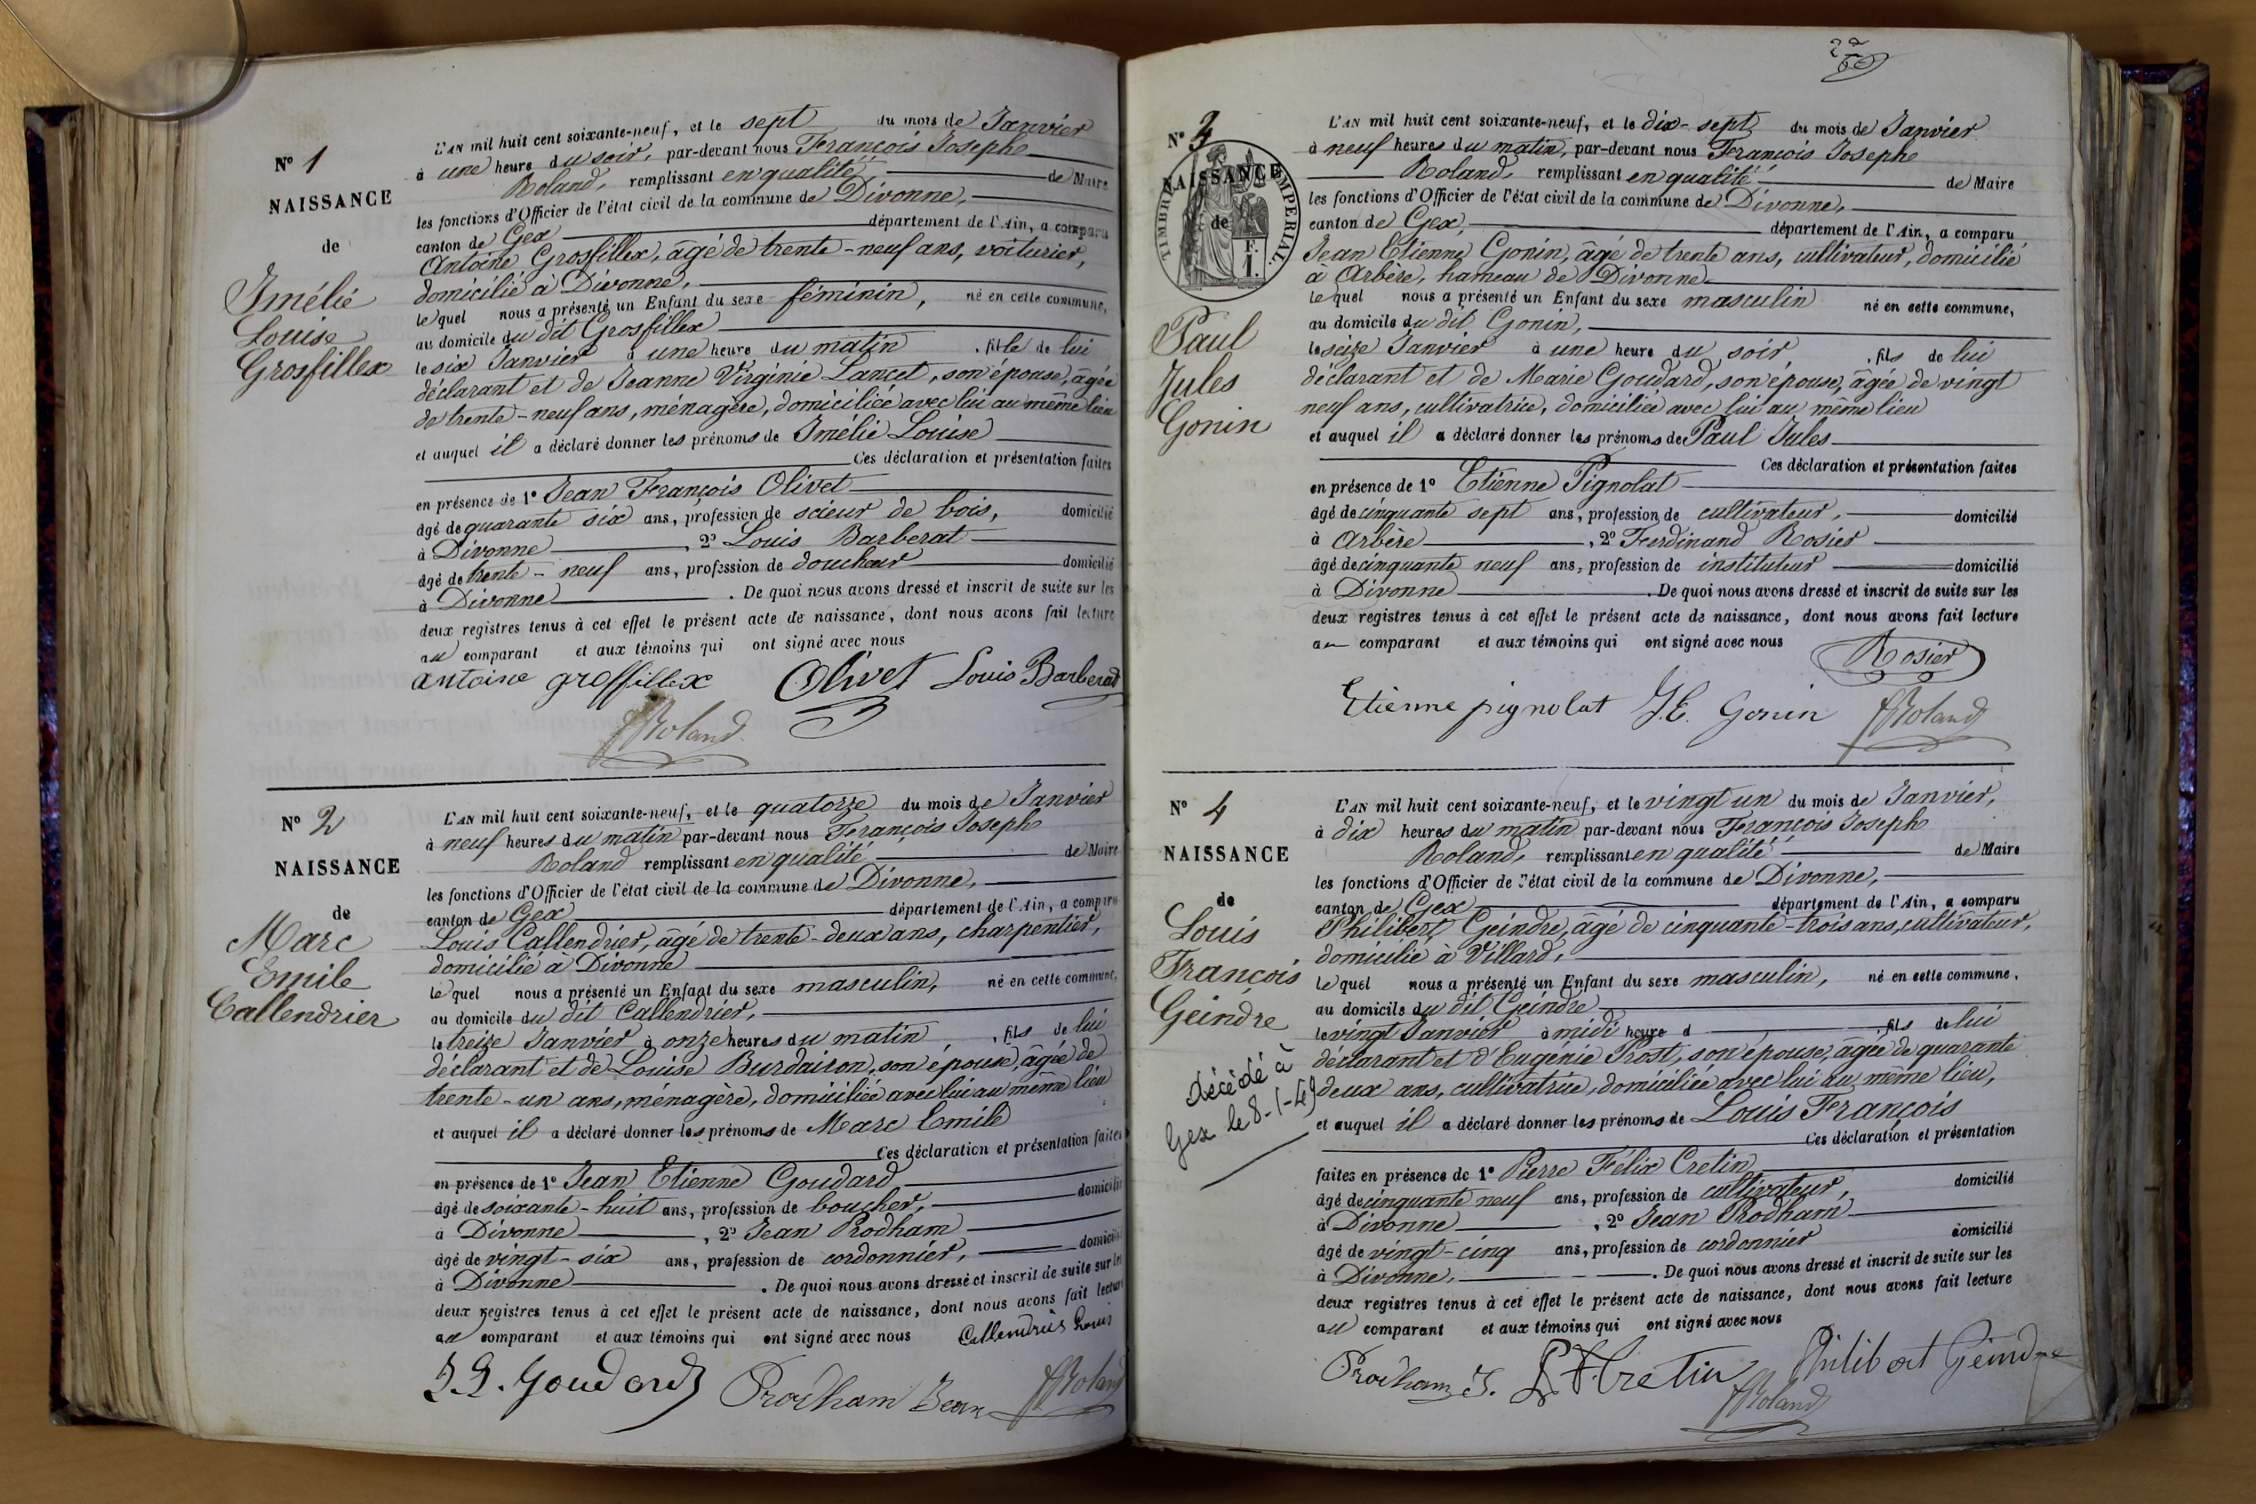 N° 1
NAISSANCE
de
Imélie
Louise
Grosfillex
L'AN mil huit cent soixante-neuf, et le sept du mois de Janvier
à une heure du soir, par-devant nous François Joseph
Roland, remplissant en qualité de Maire
les fonctions d'Officier de l'état civil de la commune de Divonne,
canton de Gex département de l'Ain, a comparu
Antoine Grosfillex, âgé de trente-neuf ans, voiturier,
domicilié à Divonne,
lequel nous a présenté un Enfant du sexe féminin, né en cette commune,
au domicile du dit Grosfillex
le six Janvier à une heure du matin, fille de lui
déclarant et de Jeanne Virginie Lancet, son épouse, âgée
de trente-neuf ans, ménagère, domiciliée avec lui au même lieu
et auquel il a déclaré donner les prénoms de Imélie Louise
Ces déclaration et présentation faites
en présence de 1° Jean François Olivet
âgé de quarante six ans, profession de scieur de bois, domicilié
à Divonne, 2° Louis Barberat
âgé de trente-neuf ans, profession de doucheur domicilié
à Divonne. De quoi nous avons dressé et inscrit de suite sur les
deux registres tenus à cet effet le présent acte de naissance, dont nous avons fait lecture
au comparant et aux témoins qui ont signé avec nous
antoine grosfillex Olivet Louis Barberat
Roland
N° 2
NAISSANCE
de
Marc
Emile
Callendrier
L'AN mil huit cent soixante-neuf, et le quatorze du mois de Janvier
à neuf heures du matin par-devant nous François Joseph
Roland remplissant en qualité de Maire
les fonctions d'Officier de l'état civil de la commune de Divonne,
canton de Gex département de l'Ain, a comparu
Louis Callendrier, âgé de trente-deux ans, charpentier,
domicilié à Divonne
lequel nous a présenté un Enfant du sexe masculin, né en cette commune,
au domicile du dit Callendrier,
le treize Janvier à onze heures du matin, fils de lui
déclarant et de Louise Burdairon, son épouse, âgée de
trente-un ans, ménagère, domiciliée avec lui au même lieu
et auquel il a déclaré donner les prénoms de Marc Emile
Ces déclaration et présentation faites
en présence de 1° Jean Etienne Goudard
âgé de soixante-huit ans, profession de boucher, domicilié
à Divonne, 2° Jean Prodham
âgé de vingt-six ans, profession de cordonnier, domicilié
à Divonne. De quoi nous avons dressé et inscrit de suite sur les
deux registres tenus à cet effet le présent acte de naissance, dont nous avons fait lecture
au comparant et aux témoins qui ont signé avec nous Callendrier Louis
J. E. Goudard Prodham Jean Roland
N° 3
NAISSANCE
de
TIMBRE IMPERIAL.
F.
1.
Paul
Jules
Gonin
L'AN mil huit cent soixante-neuf, et le dix-sept du mois de Janvier
à neuf heures du matin, par-devant nous François Joseph
Roland, remplissant en qualité de Maire
les fonctions d'Officier de l'état civil de la commune de Divonne,
canton de Gex, département de l'Ain, a comparu
Jean Etienne Gonin, âgé de trente ans, cultivateur, domicilié
à Arbère, hameau de Divonne
lequel nous a présenté un Enfant du sexe masculin né en cette commune,
au domicile du dit Gonin,
le seize Janvier à une heure du soir, fils de lui
déclarant et de Marie Goudard, son épouse, âgée de vingt
neuf ans, cultivatrice, domiciliée avec lui au même lieu
et auquel il a déclaré donner les prénoms de Paul Jules
Ces déclaration et présentation faites
en présence de 1° Etienne Pignolat
âgé de cinquante sept ans, profession de cultivateur, domicilié
à Arbère, 2° Ferdinand Rosier
âgé de cinquante neuf ans, profession de instituteur domicilié
à Divonne. De quoi nous avons dressé et inscrit de suite sur les
deux registres tenus à cet effet le présent acte de naissance, dont nous avons fait lecture
au comparant et aux témoins qui ont signé avec nous
Rosier
Etienne pignolat J. E. Gonin Roland
N° 4
NAISSANCE
de
Louis
François
Geindre
décédé à
Gex le 8-1-49
L'AN mil huit cent soixante-neuf, et le vingt un du mois de Janvier,
à dix heures du matin par-devant nous François Joseph
Roland, remplissant en qualité de Maire
les fonctions d'Officier de l'état civil de la commune de Divonne,
canton de Gex département de l'Ain, a comparu
Philibert Geindre, âgé de cinquante-trois ans, cultivateur,
domicilié à Villard,
lequel nous a présenté un Enfant du sexe masculin, né en cette commune,
au domicile du dit Geindre
le vingt Janvier à midi heure d, fils de lui
déclarant et d'Eugénie Prost, son épouse, âgée de quarante
deux ans, cultivatrice, domiciliée avec lui au même lieu,
et auquel il a déclaré donner les prénoms de Louis François
Ces déclaration et présentation
faites en présence de 1° Pierre Félix Cretin
âgé de cinquante neuf ans, profession de cultivateur, domicilié
à Divonne, 2° Jean Prodham
âgé de vingt-cinq ans, profession de cordonnier domicilié
à Divonne. De quoi nous avons dressé et inscrit de suite sur les
deux registres tenus à cet effet le présent acte de naissance, dont nous avons fait lecture
au comparant et aux témoins qui ont signé avec nous
Prodham J. P. F. Cretin Philibert Geindre
Roland